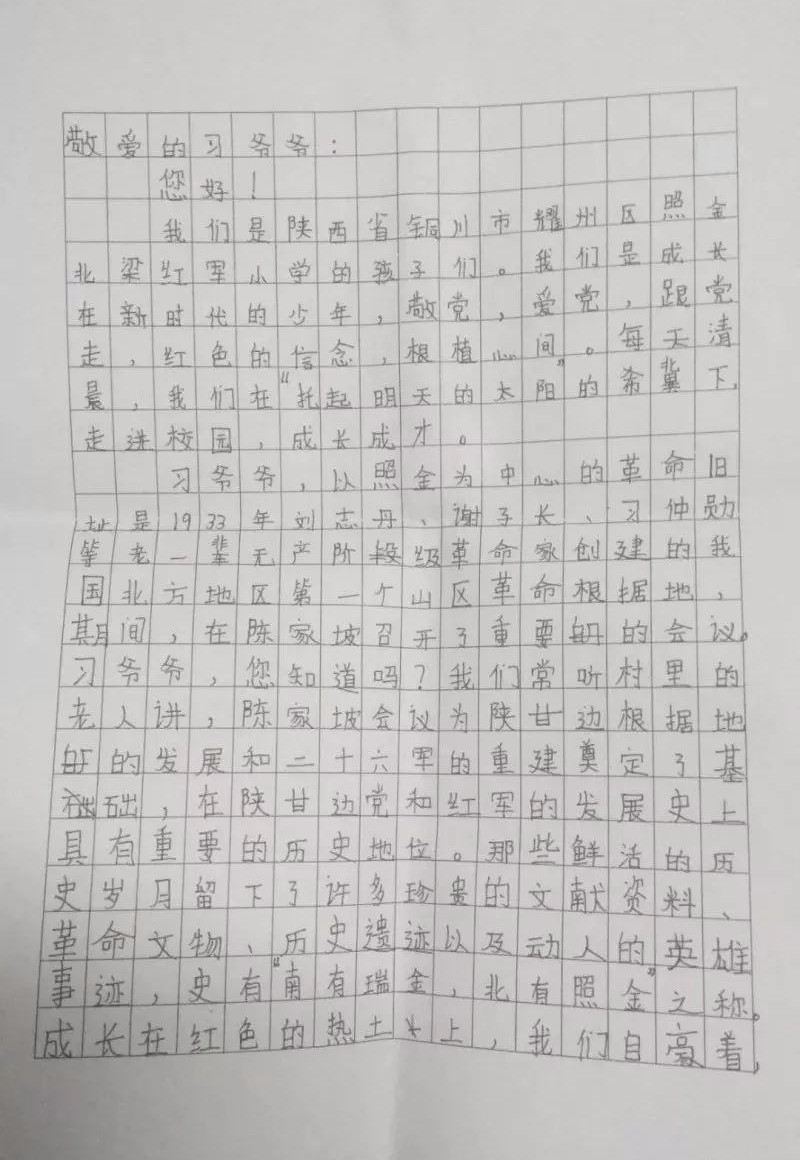 敬爱的习爷爷：
您好！
我们是陕西省铜川市耀州区照金
北梁红军小学的孩子们。我们是成长
在新时代的少年，敬党，爱党，跟党
走，红色的信念，根植心间。每天清
晨，我们在“托起明天的太阳”的希冀下，
走进校园，成长成才。
习爷爷，以照金为中心的革命旧
址是1933年刘志丹、谢子长、习仲勋
等老一辈无产阶段级革命家创建的我
国北方地区第一个山区革命根据地，
其间，在陈家坡召开了重要的会议。
习爷爷，您知道吗？我们常听村里的
老人讲，陈家坡会议为陕甘边根据地
的发展和二十六军的重建奠定了基
础，在陕甘边党和红军的发展史上
具有重要的历史地位。那些鲜活的历
史岁月留下了许多珍贵的文献资料、
革命文物、历史遗迹以及动人的英雄
事迹，史有“南有瑞金，北有照金”之称。
成长在红色的热土上，我们自豪着，